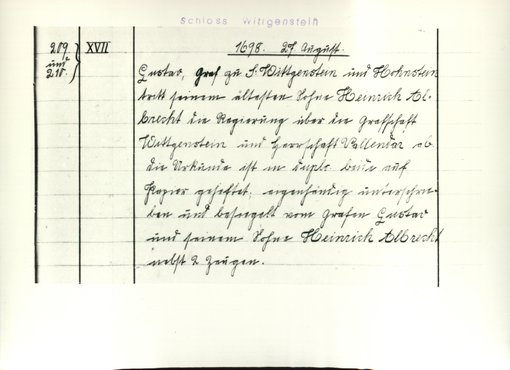 Schloss Wittgenstein
1698. 27. August.
209 XVII
und
210.
Gustav, Graf zu S. Wittgenstein und Hohnstein
tritt seinem ältesten Sohne Heinrich Al-
brecht die Regierung über die Grafschaft
Wittgenstein und Herrschaft Vallendar ab.
die Urkunde ist in duplo beide auf
Papier geheftet, eigenhändig unterschrie-
ben und besiegelt vom Grafen Gustav
und seinem Sohne Heinrich Albrecht
nebst 2 Zeugen.